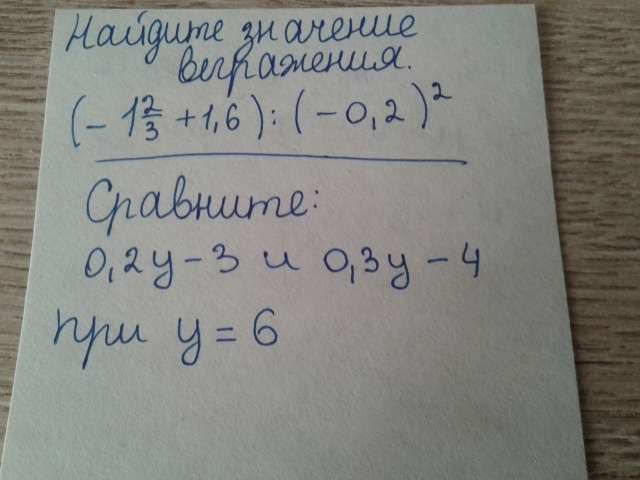 Найдите значение
выражения.
(- 1 2/3 + 1,6) : (- 0,2)²
Сравните:
0,2у - 3 и 0,3у - 4
при у = 6